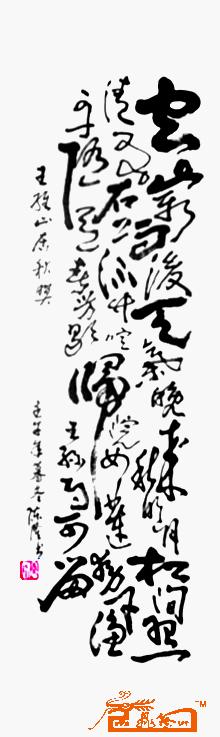 空山新雨後天氣晚来秋明月松間照
清泉石上流竹喧歸浣女蓮動下漁
舟隨意春芳歇王孫自可留
王維山居秋暝
年暮冬陈书
TM